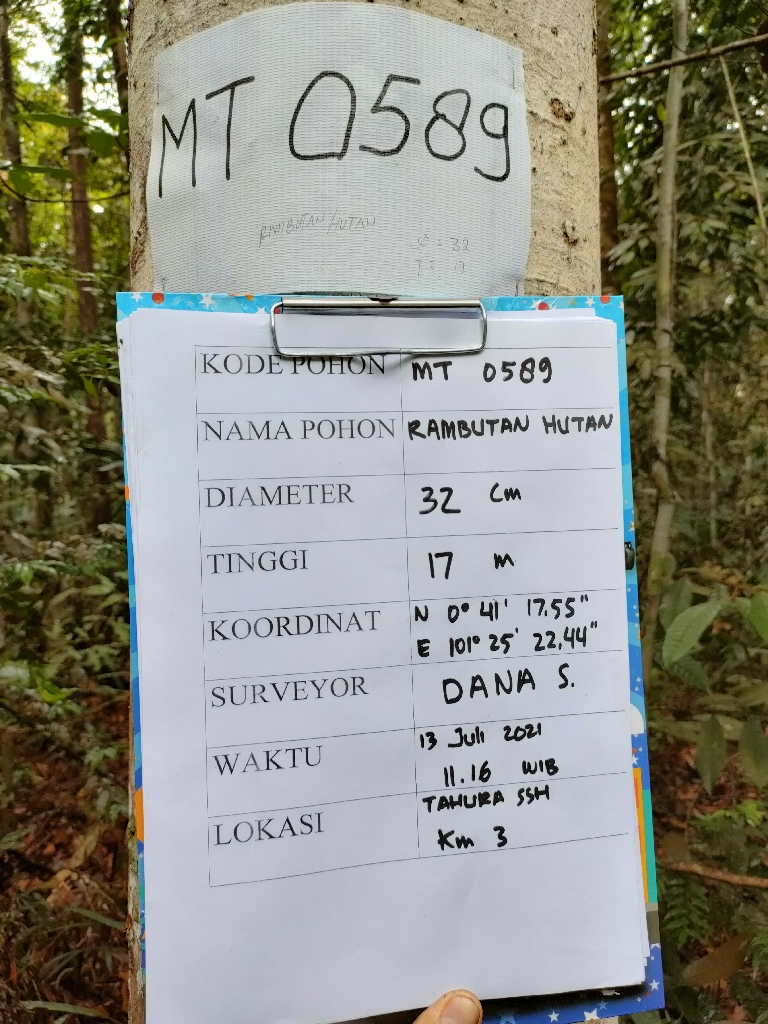 MT 0589
RAMBUTAN HUTAN
Ø = 32
T = 17
KODE POHON MT 0589
NAMA POHON RAMBUTAN HUTAN
DIAMETER 32 Cm
TINGGI 17 m
KOORDINAT N 0° 41' 17.55"
E 101° 25' 22,44"
SURVEYOR DANA S.
WAKTU 13 Juli 2021
11.16 WIB
LOKASI TAHURA SSH
Km 3